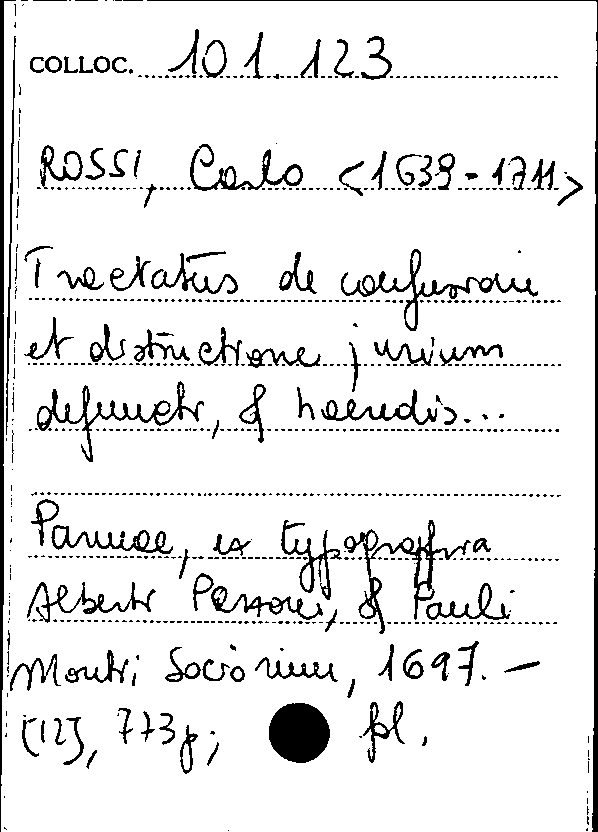 COLLOC. 101.123
ROSSI, Carlo <1639-1711>
Tractatus de confusione
et distinctione jurium
defuncti, & haeredis...
Parmae, ex typographia
Alberti Pazzoni, & Pauli
Montii Sociorum, 1697. —
[12], 773 p; fol.